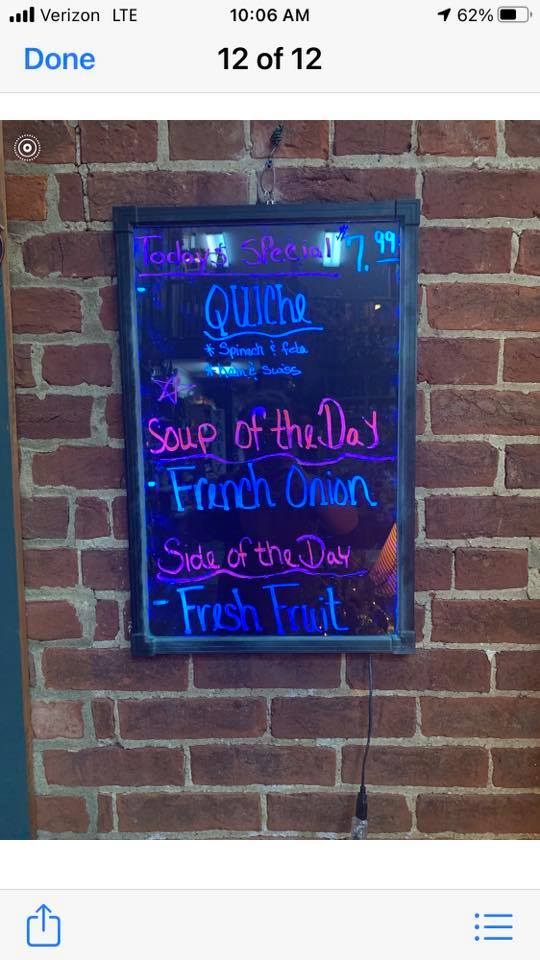 Verizon LTE 10:06 AM 62%
Done 12 of 12
Today's Special $7.99
Quiche
* Spinach & feta
* ham & Swiss
Soup of the Day
- French Onion
Side of the Day
- Fresh Fruit